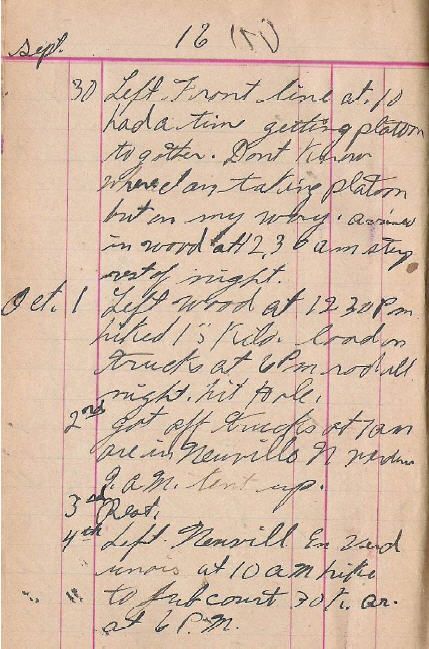 Sept. 18 (17)
30 Left Front line at 10
had a time getting platoon
togather. Dont Know
where I am taking platoon
but on my way. arrived
in wood at 2,30 am stay
rest of night.
Oct. 1 Left wood at 1230 Pm
hiked 15 Kilo. load on
trucks at 6 Pm rod all
night. hit Hole.
2nd got off trucks at 7am
are in Neuville
9. a.m. tent up.
3rd Rest.
4th Left Neuvill En
at 10 am hike
" " to Jubcourt 30 K. ar.
at 6 P.M.